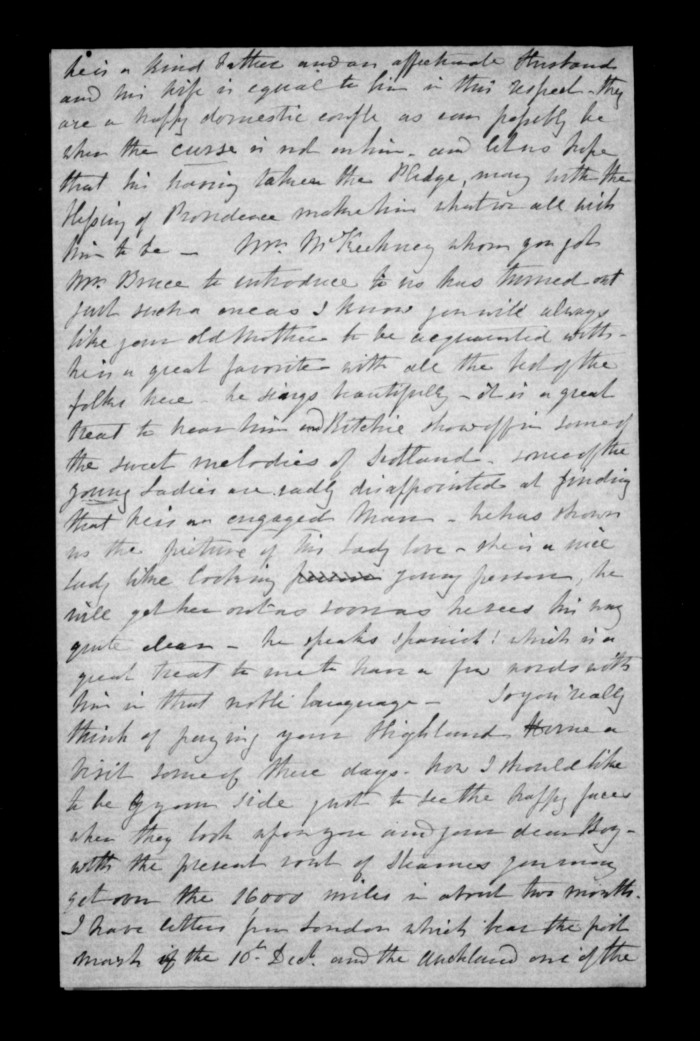 he is a kind Father and an affectionate Husband
and his wife is equal to him in this respect - they
are a happy domestic couple as can possibly be
when the curse is not on him - and let us hope
that his having taken the Pledge, may with the
blessing of Providence make him what we all wish
him to be - Mr. McKechney whom you got
Mr. Bruce to introduce to us has turned out
just such a one as I know you will always
like your old Mother to be acquainted with -
he is a great favorite with all the best of the
folks here - he sings beautifully - it is a great
treat to hear him and Ritchie show off in some of
the sweet melodies of Scotland - some of the
young Ladies are sadly disappointed at finding
that he is an engaged Man - he has shown
us the picture of his Lady love - she is a nice
lady like looking young person, he
will get her out as soon as he sees his way
quite clear - he speaks Spanish! which is a
great treat to me to have a few words with
him in that noble language - So you really
think of paying your Highland Home a
visit some of these days - how I should like
to be by your side just to see the happy faces
when they look upon you and your dear Boy -
with the present rout of Steamers you may
get over the 16000 miles in about two months.
I have letters from London which bear the post
mark of the 10th Decr. and the Auckland one of the